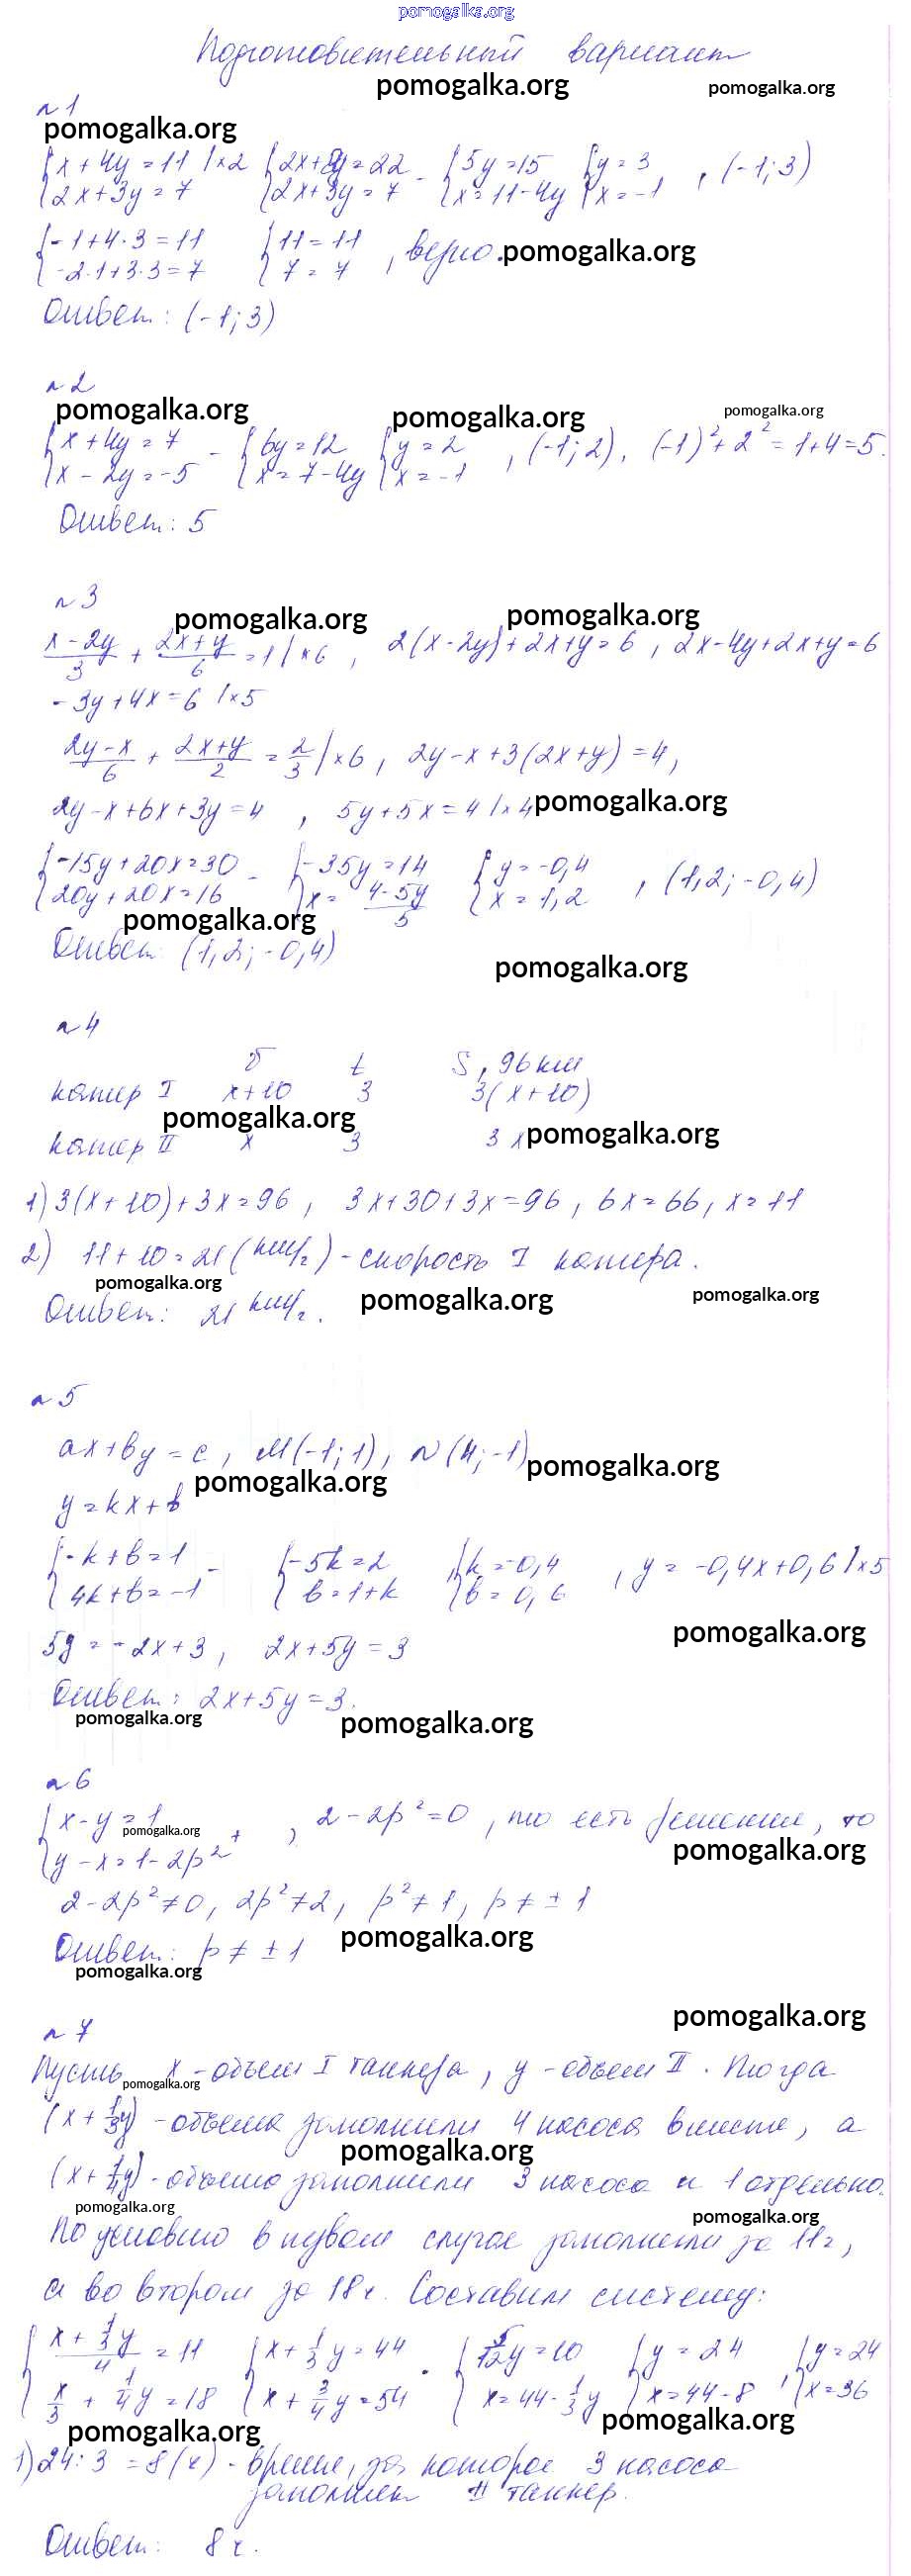 pomogalka.org
Подготовительный вариант
pomogalka.org pomogalka.org
n 1
pomogalka.org
{x + 4y = 11 |×2 {2x + 8y = 22 - {5y = 15 {y = 3 , (-1; 3)
{2x + 3y = 7 {2x + 3y = 7 {x = 11 - 4y {x = -1
{-1 + 4·3 = 11 {11 = 11
{-2·1 + 3·3 = 7 {7 = 7 , верно. pomogalka.org
Ответ: (-1; 3)
n 2
pomogalka.org pomogalka.org pomogalka.org
{x + 4y = 7 - {6y = 12 {y = 2 , (-1; 2), (-1)² + 2² = 1 + 4 = 5.
{x - 2y = -5 {x = 7 - 4y {x = -1
Ответ: 5
n 3
pomogalka.org pomogalka.org
(x - 2y)/3 + (2x + y)/6 = 1 | ×6 , 2(x - 2y) + 2x + y = 6 , 2x - 4y + 2x + y = 6
-3y + 4x = 6 |×5
(2y - x)/6 + (2x + y)/2 = 2/3 | ×6 , 2y - x + 3(2x + y) = 4,
2y - x + 6x + 3y = 4 , 5y + 5x = 4 |×4 pomogalka.org
{-15y + 20x = 30 - {-35y = 14 {y = -0,4 , (1,2; -0,4)
{20y + 20x = 16 {x = (4 - 5y)/5 {x = 1,2
pomogalka.org
Ответ: (1,2; -0,4)
pomogalka.org
n 4
v t S, 96 км
катер I x + 10 3 3(x + 10)
pomogalka.org
катер II x 3 3x pomogalka.org
1) 3(x + 10) + 3x = 96 , 3x + 30 + 3x = 96 , 6x = 66 , x = 11
2) 11 + 10 = 21 (км/ч) - скорость I катера.
pomogalka.org pomogalka.org pomogalka.org
Ответ: 21 км/ч.
n 5
ax + by = c , M(-1; 1), N(4; -1)
pomogalka.org pomogalka.org
y = kx + b
{-k + b = 1 - {-5k = 2 {k = -0,4 , y = -0,4x + 0,6 |×5
{4k + b = -1 {b = 1 + k {b = 0,6
pomogalka.org
5y = -2x + 3 , 2x + 5y = 3
Ответ: 2x + 5y = 3.
pomogalka.org pomogalka.org
n 6
{x - y = 1 + , 2 - 2p² = 0 , то есть решения, то
pomogalka.org
{y - x = 1 - 2p²
pomogalka.org
2 - 2p² ≠ 0, 2p² ≠ 2, p² ≠ 1, p ≠ ± 1
pomogalka.org
Ответ: p ≠ ± 1
pomogalka.org
pomogalka.org
n 7
Пусть x - объем I танкера, y - объем II. Тогда
pomogalka.org
(x + 1/3 y) - объема заполнили 4 насоса вместе, а
pomogalka.org
(x + 1/4 y) - объема заполнили 3 насоса и 1 отдельно.
pomogalka.org pomogalka.org
По условию в первом случае заполнили за 11 ч,
а во втором за 18 ч. Составим систему:
{(x + 1/3 y)/4 = 11 {x + 1/3 y = 44 - {5/12 y = 10 {y = 24 , {y = 24
{x/3 + 1/4 y = 18 {x + 3/4 y = 54 {x = 44 - 1/3 y {x = 44 - 8 {x = 36
pomogalka.org pomogalka.org
1) 24 : 3 = 8 (ч) - время, за которое 3 насоса
заполнили II танкер.
Ответ: 8 ч.